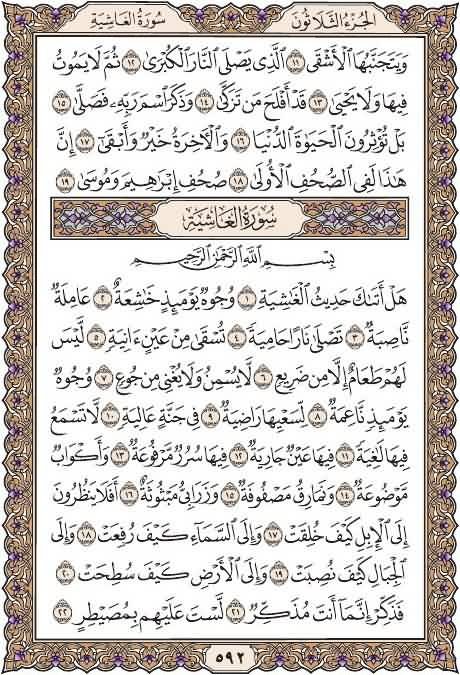 الجُزْءُ الثَّلَاثُونَ سُورَةُ الغَاشِيَةِ
وَيَتَجَنَّبُهَا الْأَشْقَى ١١ الَّذِي يَصْلَى النَّارَ الْكُبْرَىٰ ١٢ ثُمَّ لَا يَمُوتُ
فِيهَا وَلَا يَحْيَىٰ ١٣ قَدْ أَفْلَحَ مَن تَزَكَّىٰ ١٤ وَذَكَرَ اسْمَ رَبِّهِ فَصَلَّىٰ ١٥
بَلْ تُؤْثِرُونَ الْحَيَوٰةَ الدُّنْيَا ١٦ وَالْآخِرَةُ خَيْرٌ وَأَبْقَىٰ ١٧ إِنَّ
هَٰذَا لَفِي الصُّحُفِ الْأُولَىٰ ١٨ صُحُفِ إِبْرَٰهِيمَ وَمُوسَىٰ ١٩
سُورَةُ الغَاشِيَةِ
بِسْمِ اللَّهِ الرَّحْمَٰنِ الرَّحِيمِ
هَلْ أَتَىٰكَ حَدِيثُ الْغَٰشِيَةِ ١ وُجُوهٌ يَوْمَئِذٍ خَٰشِعَةٌ ٢ عَامِلَةٌ
نَّاصِبَةٌ ٣ تَصْلَىٰ نَارًا حَامِيَةً ٤ تُسْقَىٰ مِنْ عَيْنٍ ءَانِيَةٍ ٥ لَّيْسَ
لَهُمْ طَعَامٌ إِلَّا مِن ضَرِيعٍ ٦ لَّا يُسْمِنُ وَلَا يُغْنِي مِن جُوعٍ ٧ وُجُوهٌ
يَوْمَئِذٍ نَّاعِمَةٌ ٨ لِّسَعْيِهَا رَاضِيَةٌ ٩ فِي جَنَّةٍ عَالِيَةٍ ١٠ لَّا تَسْمَعُ
فِيهَا لَٰغِيَةً ١١ فِيهَا عَيْنٌ جَارِيَةٌ ١٢ فِيهَا سُرُرٌ مَّرْفُوعَةٌ ١٣ وَأَكْوَابٌ
مَّوْضُوعَةٌ ١٤ وَنَمَارِقُ مَصْفُوفَةٌ ١٥ وَزَرَابِيُّ مَبْثُوثَةٌ ١٦ أَفَلَا يَنظُرُونَ
إِلَى الْإِبِلِ كَيْفَ خُلِقَتْ ١٧ وَإِلَى السَّمَاءِ كَيْفَ رُفِعَتْ ١٨ وَإِلَى
الْجِبَالِ كَيْفَ نُصِبَتْ ١٩ وَإِلَى الْأَرْضِ كَيْفَ سُطِحَتْ ٢٠
فَذَكِّرْ إِنَّمَا أَنتَ مُذَكِّرٌ ٢١ لَّسْتَ عَلَيْهِم بِمُصَيْطِرٍ ٢٢
٥٩٢